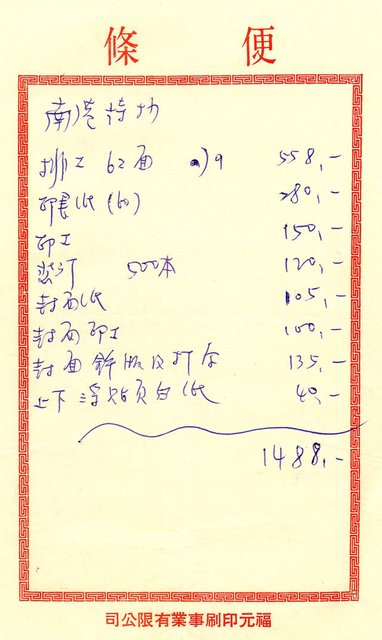 便條
南港
排工 62面 @9 558,-
紙 (60) 280,-
印工 150,-
裝訂 500本 120,-
封面紙 105,-
封面印工 100,-
封面鋅版及打 135,-
上下浮貼頁白紙 40,-
1488,-
福元印刷事業有限公司